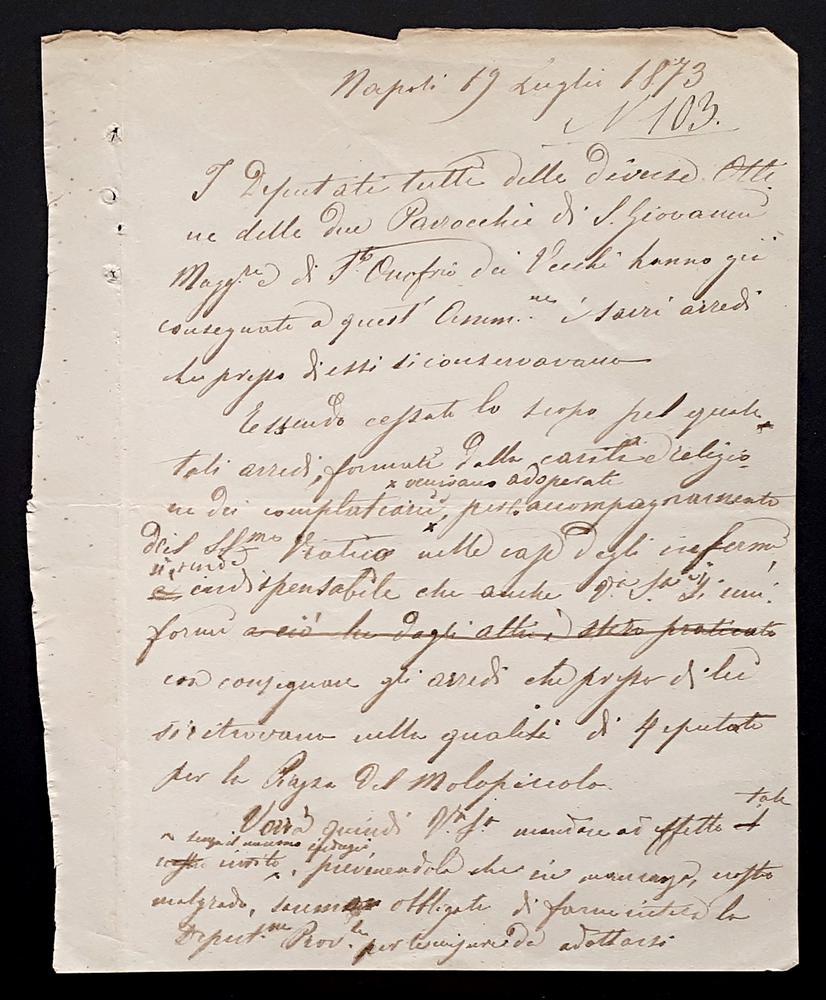 Napoli 19 Luglio 1873
N 103.
I Deputati tutti delle diverse Otti
ne delle due Parrocchie di S. Giovanni
Magg.re e di S.to Onofrio dei Vecchi hanno già
consegnato a quest' Amm.ne i sacri arredi
che presso di essi si conservavano
Essendo cessato lo scopo pel quale
tali arredi, formati dalla carità e religio
x venivano adoperati
ne dei complatearii, per accompagnamento
del SS.mo Viatico nelle case degli infermi
si rende
è indispensabile che anche V.a S.a si uni
formi a ciò che dagli altri è stato praticato
con consegnare gli arredi che presso di lei
si ritrovano nella qualità di Deputato
per la Piazza del Molopiccolo.
tale
Vorrà quindi V.a S.a mandare ad effetto
senza il menomo indugio
invito, prevenendola che in mancanza, nostro
malgrado, saremo obbligati di farne intesa la
Deput.ne Prov.le per le misure da adottarsi